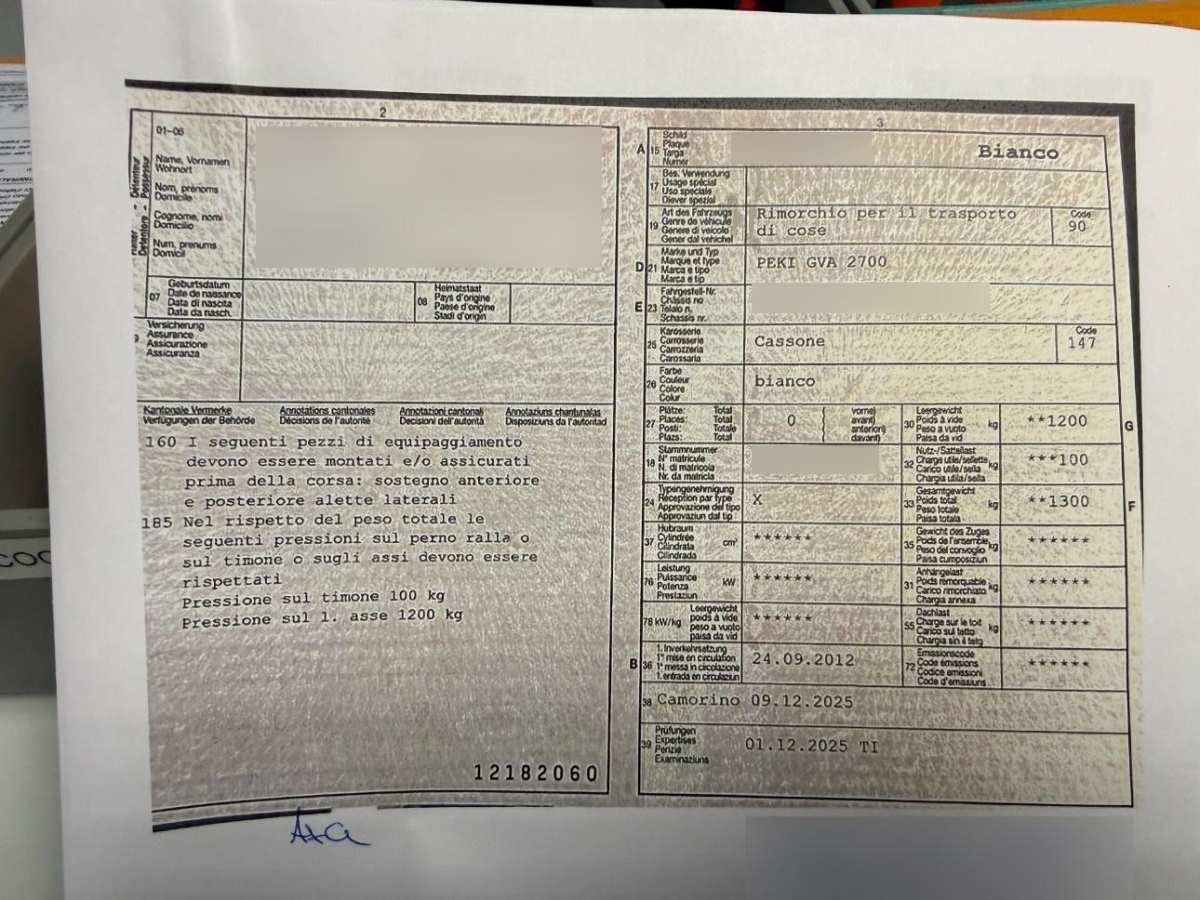 2
01-06
Name, Vornamen
Wohnort
Nom, prénoms
Domicile
Cognome, nomi
Domicilio
Num, prenums
Domicil
Détenteur
Possessur
Detentore
07
Geburtsdatum
Date de naissance
Data di nascita
Data da nasch.
08
Heimatstaat
Pays d'origine
Paese d'origine
Stadi d'origin
Versicherung
Assurance
Assicurazione
Assicuranza
Kantonale Vermerke
Verfügungen der Behörde
Annotations cantonales
Décisions de l'autorité
Annotazioni cantonali
Decisioni dell'autorità
Annotaziuns chantunalas
Disposiziuns da l'autoritad
160 I seguenti pezzi di equipaggiamento
devono essere montati e/o assicurati
prima della corsa: sostegno anteriore
e posteriore alette laterali
185 Nel rispetto del peso totale le
seguenti pressioni sul perno ralla o
sul timone o sugli assi devono essere
rispettati
Pressione sul timone 100 kg
Pressione sul 1. asse 1200 kg
12182060
3
A 15
Schild
Plaque
Targa
Numer
Bianco
17
Bes. Verwendung
Usage spécial
Uso speciale
Diever spezial
19
Art des Fahrzeugs
Genre de véhicule
Genere di veicolo
Gener dal vehichel
Rimorchio per il trasporto
di cose
Code
90
D 21
Marke und Typ
Marque et type
Marca e tipo
Marca e tip
PEKI GVA 2700
E 23
Fahrgestell-Nr.
Châssis no
Telaio n.
Schassis nr.
25
Karosserie
Carrosserie
Carrozzeria
Carossaria
Cassone
Code
147
26
Farbe
Couleur
Colore
Colur
bianco
27
Plätze: Total
Places: Total
Posti: Totale
Plazs: Total
0
vorne)
avant)
anteriori)
davant)
30
Leergewicht
Poids à vide
Peso a vuoto
Paisa da vid
kg
**1200
G
18
Stammnummer
N° matricule
N. di matricola
Nr. da matricla
32
Nutz-/Sattellast
Charge utile/sellette
Carico utile/sella
Chargia utila/sella
kg
***100
24
Typengenehmigung
Réception par type
Approvazione del tipo
Approvaziun dal tip
X
33
Gesamtgewicht
Poids total
Peso totale
Paisa totala
kg
**1300
F
37
Hubraum
Cylindrée
Cilindrata
Cilindrada
cm³
******
35
Gewicht des Zuges
Poids de l'ensemble
Peso del convoglio
Paisa cumposiziun
kg
******
76
Leistung
Puissance
Potenza
Prestaziun
kW
******
31
Anhängelast
Poids remorquable
Carico rimorchiato
Chargia annexa
kg
******
78 kW/kg
Leergewicht
poids à vide
peso a vuoto
paisa da vid
******
55
Dachlast
Charge sur le toit
Carico sul tetto
Chargia sin il tetg
kg
******
B 36
1. Inverkehrsetzung
1re mise en circulation
1a messa in circolazione
1. entrada en circulaziun
24.09.2012
72
Emissionscode
Code émissions
Codice emissioni
Code d'emissiuns
******
38 Camorino 09.12.2025
39
Prüfungen
Expertises
Perizie
Examinaziuns
01.12.2025 TI